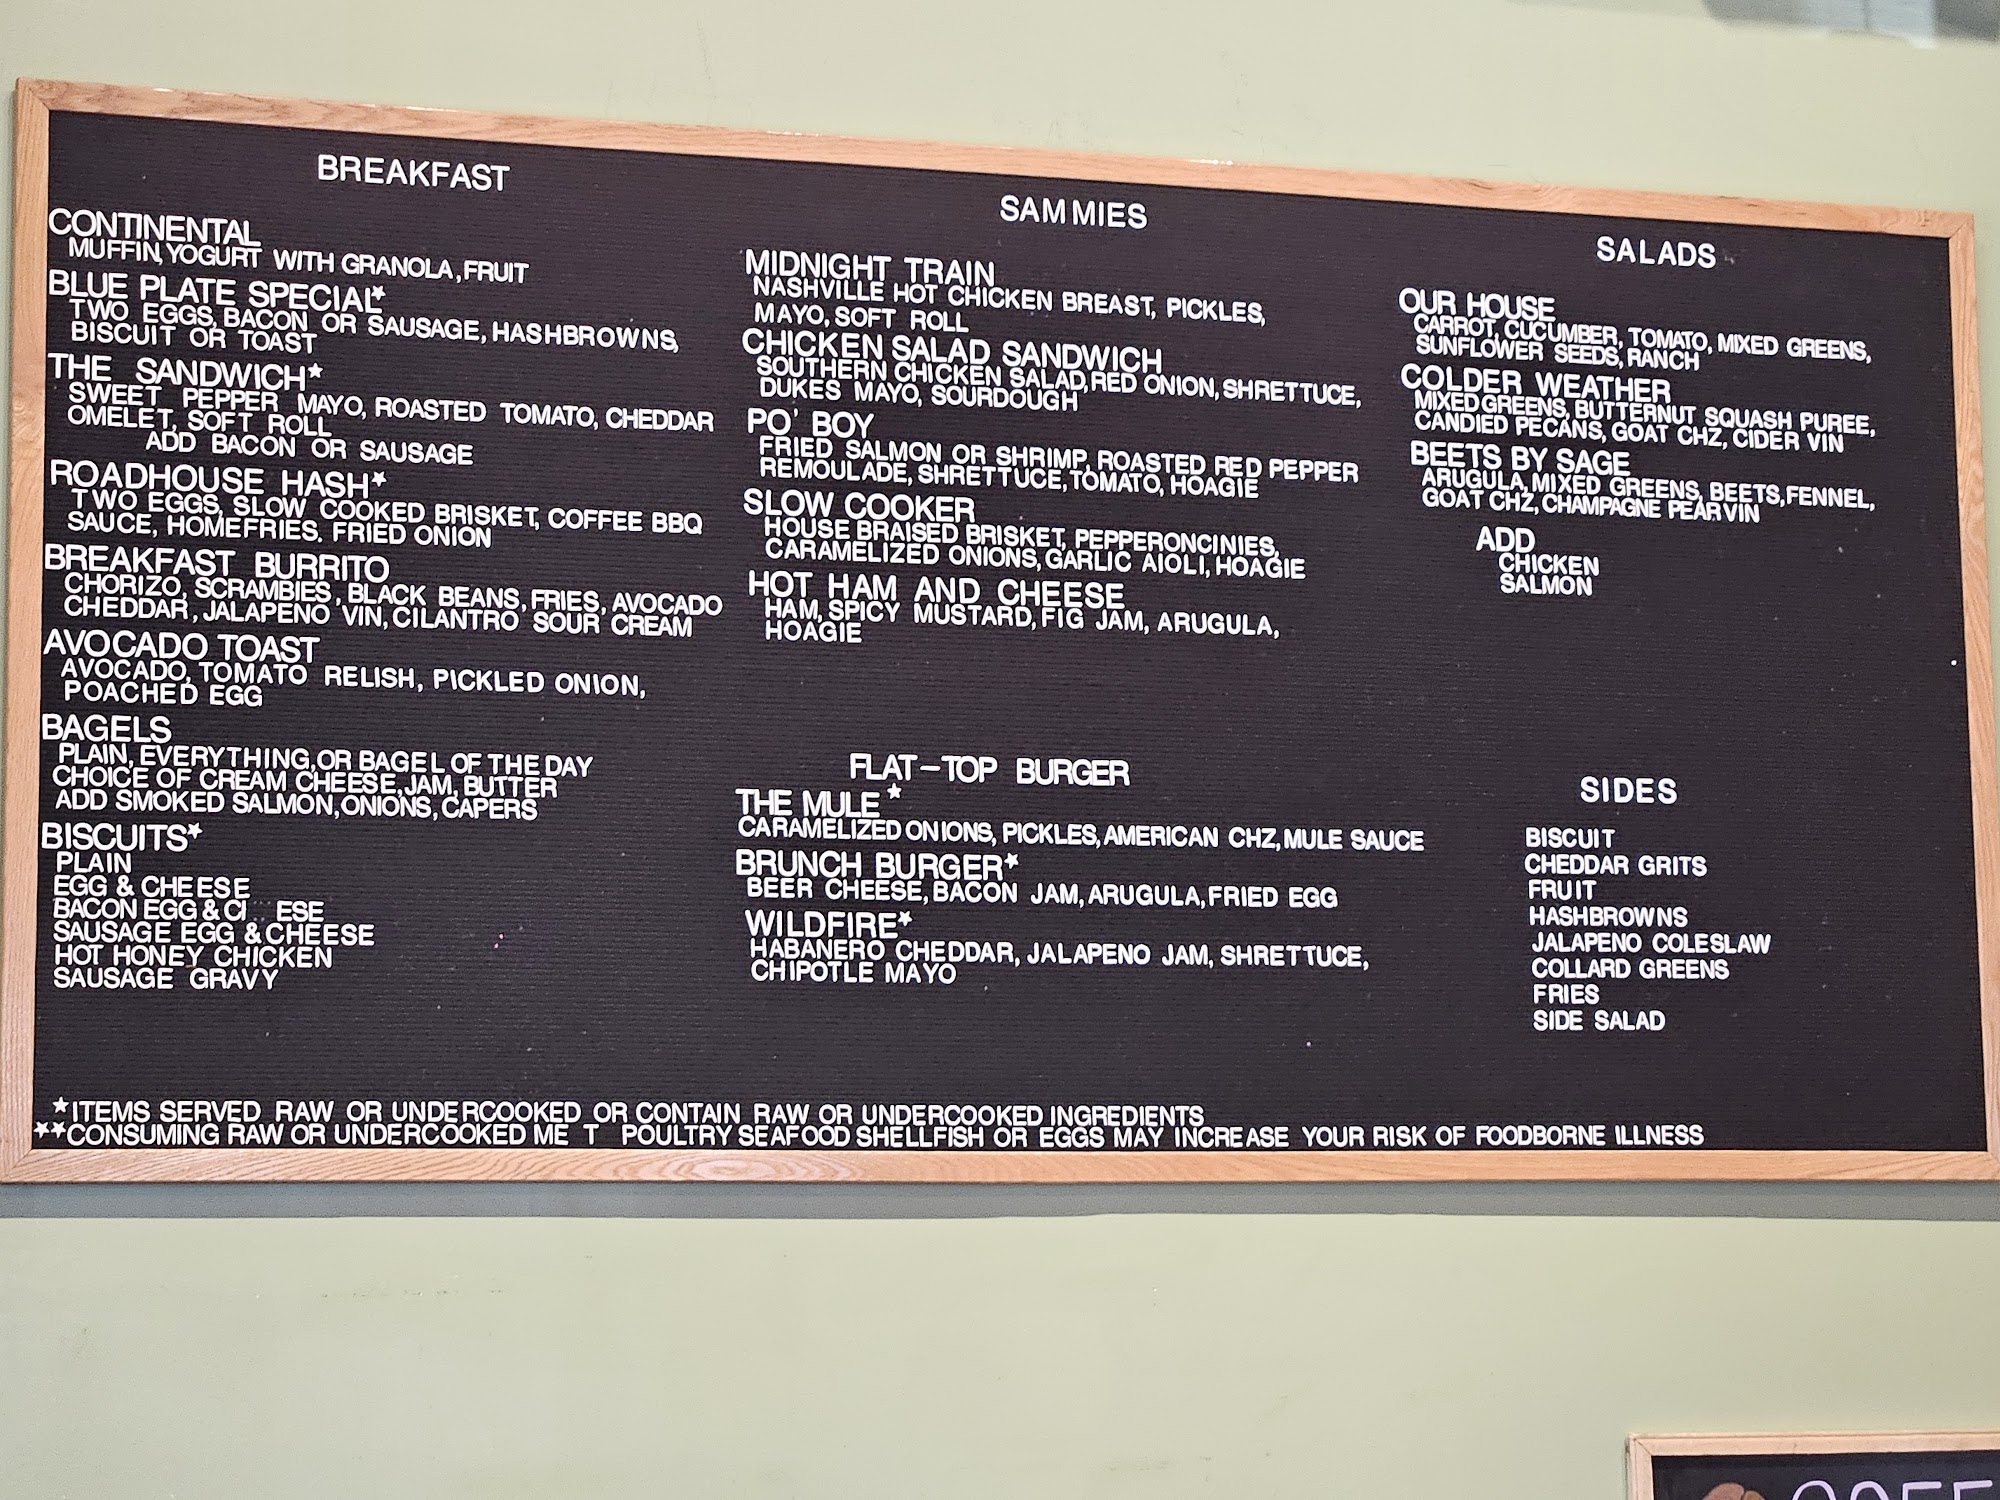 BREAKFAST
CONTINENTAL
MUFFIN, YOGURT WITH GRANOLA, FRUIT
BLUE PLATE SPECIAL*
TWO EGGS, BACON OR SAUSAGE, HASHBROWNS,
BISCUIT OR TOAST
THE SANDWICH*
SWEET PEPPER MAYO, ROASTED TOMATO, CHEDDAR
OMELET, SOFT ROLL
ADD BACON OR SAUSAGE
ROADHOUSE HASH*
TWO EGGS, SLOW COOKED BRISKET, COFFEE BBQ
SAUCE, HOMEFRIES. FRIED ONION
BREAKFAST BURRITO
CHORIZO, SCRAMBIES, BLACK BEANS, FRIES, AVOCADO
CHEDDAR, JALAPENO VIN, CILANTRO SOUR CREAM
AVOCADO TOAST
AVOCADO, TOMATO RELISH, PICKLED ONION,
POACHED EGG
BAGELS
PLAIN, EVERYTHING, OR BAGEL OF THE DAY
CHOICE OF CREAM CHEESE, JAM, BUTTER
ADD SMOKED SALMON, ONIONS, CAPERS
BISCUITS*
PLAIN
EGG & CHEESE
BACON EGG & C ESE
SAUSAGE EGG & CHEESE
HOT HONEY CHICKEN
SAUSAGE GRAVY
SAMMIES
MIDNIGHT TRAIN
NASHVILLE HOT CHICKEN BREAST, PICKLES,
MAYO, SOFT ROLL
CHICKEN SALAD SANDWICH
SOUTHERN CHICKEN SALAD, RED ONION, SHRETTUCE,
DUKES MAYO, SOURDOUGH
PO' BOY
FRIED SALMON OR SHRIMP, ROASTED RED PEPPER
REMOULADE, SHRETTUCE, TOMATO, HOAGIE
SLOW COOKER
HOUSE BRAISED BRISKET, PEPPERONCINIES,
CARAMELIZED ONIONS, GARLIC AIOLI, HOAGIE
HOT HAM AND CHEESE
HAM, SPICY MUSTARD, FIG JAM, ARUGULA,
HOAGIE
FLAT-TOP BURGER
THE MULE*
CARAMELIZED ONIONS, PICKLES, AMERICAN CHZ, MULE SAUCE
BRUNCH BURGER*
BEER CHEESE, BACON JAM, ARUGULA, FRIED EGG
WILDFIRE*
HABANERO CHEDDAR, JALAPENO JAM, SHRETTUCE,
CHIPOTLE MAYO
SALADS
OUR HOUSE
CARROT, CUCUMBER, TOMATO, MIXED GREENS,
SUNFLOWER SEEDS, RANCH
COLDER WEATHER
MIXED GREENS, BUTTERNUT SQUASH PUREE,
CANDIED PECANS, GOAT CHZ, CIDER VIN
BEETS BY SAGE
ARUGULA, MIXED GREENS, BEETS, FENNEL,
GOAT CHZ, CHAMPAGNE PEAR VIN
ADD
CHICKEN
SALMON
SIDES
BISCUIT
CHEDDAR GRITS
FRUIT
HASHBROWNS
JALAPENO COLESLAW
COLLARD GREENS
FRIES
SIDE SALAD
*ITEMS SERVED RAW OR UNDERCOOKED OR CONTAIN RAW OR UNDERCOOKED INGREDIENTS
**CONSUMING RAW OR UNDERCOOKED ME T POULTRY SEAFOOD SHELLFISH OR EGGS MAY INCREASE YOUR RISK OF FOODBORNE ILLNESS